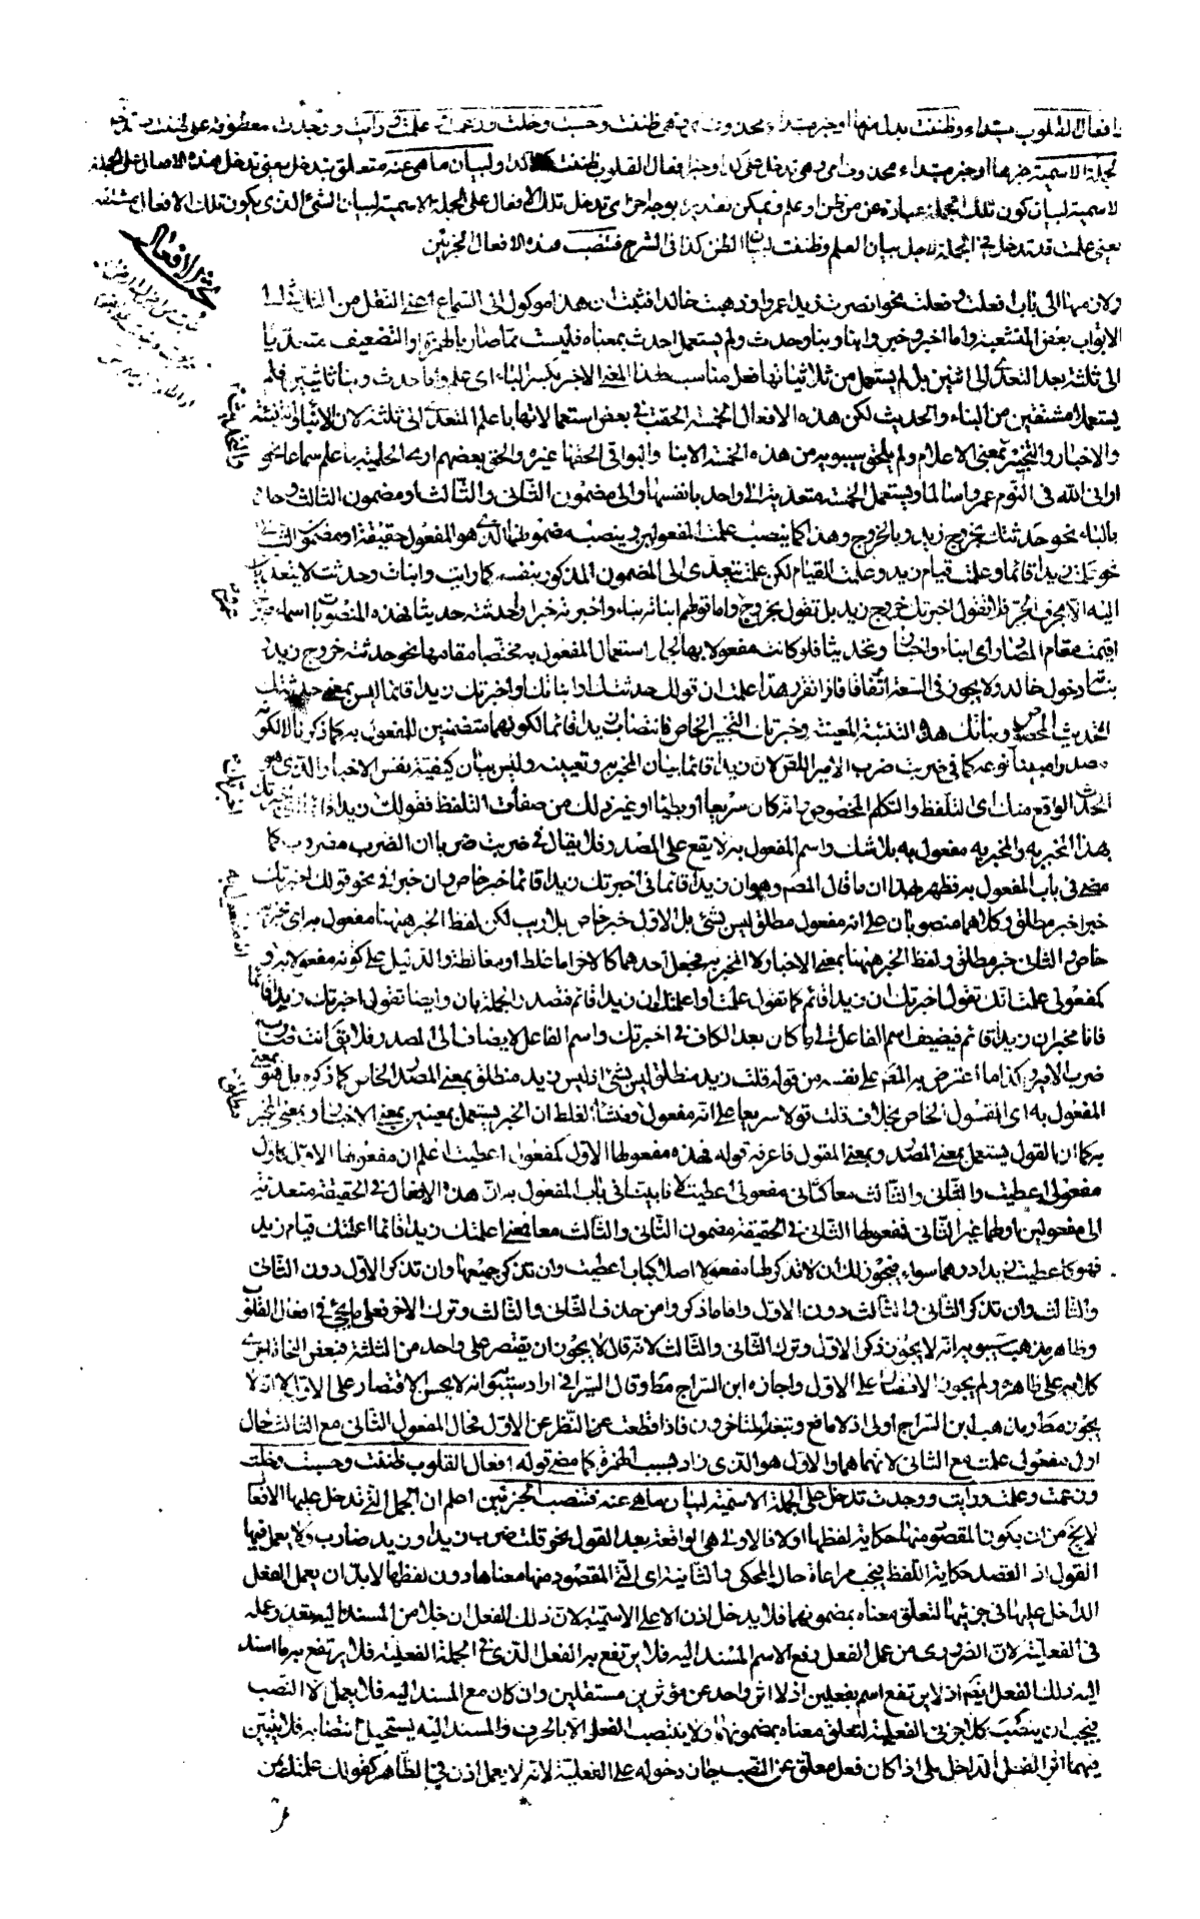 افعال القلوب مبتداء وظننت بدل منها او خبر مبتداء محذوف اى هى ظننت وحسبت وخلت وزعمت وعلمت ورايت ووجدت معطوفة على ظننت تدخل
الجملة الاسمية خبرها او خبر مبتداء محذوف اى هى تدخل على كذا وخبر افعال القلوب ظننت كذا ولبيان ما هى عنه متعلق بتدخل يعنى تدخل هذه الافعال على الجملة
الاسمية لبيان كون تلك الجملة عبارة عن من ظن او علم ويمكن تقديره بوجه اخر اى تدخل تلك الافعال على الجملة الاسمية لبيان الشئ الذى يكون تلك الافعال
يعنى علمت قد تدخل فى الجملة لاجل بيان العلم وظننت لبيان الظن كذا فى الشرح فتنصب هذه الافعال الجزئين
شرح افعال
ولا من الى باب افعلت وفعلت نحو انصرت زيدا عمروا وذهبت خالدا فثبت ان هذا موكول الى السماع اعنى النقل من الثلاثى الى
الابواب بعض المتشعبة واما اخبر وخبر وانبا ونبا وحدث ولم يستعمل احدث بمعناه فليست مما صار بالهمزة او التضعيف متعديا
الى ثلثة بعد التعدى الى اثنين بل لم يستعمل من ثلاثياتها فعل مناسب لهذا المعنى الا خبر بكسر الباء اى علم واما حدث ونبا ثلاثيين فلم
يستعملا مشتقين من النباء والحديث لكن هذه الافعال الخمسة الحقت فى بعض استعمالاتها باعلم المتعدى الى ثلثة لان الانباء والتنبئة
والاخبار والتخبير بمعنى الاعلام ولم يلحق سيبويه من هذه الخمسة الا نبا والبواقى الحقها غيره والحق بعضهم ارى الحلمية باعلم سماعا نحو
ارانى الله فى النوم عمروا سالما ويستعمل الخمسة متعدية الى واحد بانفسها والى مضمون الثانى والثالث او مضمون الثالث وحده
بالباء نحو حدثتك بخروج زيد وبالخروج وهذا كما ينصب علمت المفعولين وينصب مضمونهما الذى هو المفعول حقيقة او مضمون الثانى
نحو علمت زيدا قائما وعلمت قيام زيد وعلمت القيام لكن علمت يتعدى الى المضمون المذكور بنفسه كما رايت وانبات وحدثت لا يتعديان
اليه الا بحرف الجر فلا تقول اخبرتك خروج زيد بل تقول بخروج واما قولهم انباته نباء واخبرته خبرا وحدثته حديثا فهذه المنصوبات اسماء
اقيمت مقام المصادر اى انباء واخبارا وتحديثا فلو كانت مفعولا بها لجاز استعمال المفعول به مختصا مقامها نحو حدثته خروج زيد
دخول خالد ولا يجوز فى السعة اتفاقا فاذا تقرر هذا علمت ان قولك حدثتك او انباتك او اخبرتك زيدا قائما ليس بمعنى حدثتك
التحديث المخصوص ونباتك هذه التنبئة المعينة وخبرتك التخبير الخاص فانتصاب زيدا قائما لكونهما متضمنين للمفعول به كما ذكرنا لا لكونه
مصدرا مبينا نوعه كما فى ضربت ضرب الامير اللص لان زيدا قائما بيان المخبر به وتعيينه وليس بيان كيفية نفس الاخبار والذى هو
الحدث الواقع منك اى التلفظ والتكلم المخصوص بانه كان سريعا او بطيئا او غير ذلك من صفات التلفظ فقولك زيدا
بهذا المخبر به والمخبر به مفعول به بلا شك واسم المفعول به لا يقع على المصدر فلا يقال فى ضربت ضربا ان الضرب مضروب كما
مضى فى باب المفعول به فظهر بهذا ان ما قال المصنف وهو ان زيدا قائما فى اخبرتك زيدا قائما خبر خاص وان خبرا فى نحو قولك اخبرتك
خبرا خبر مطلق وكلاهما منصوبان على انه مفعول مطلق ليس بشئ بل الاول خبر خاص بلا ريب لكن لفظ الخبر ههنا مفعول به اى مخبر به
خاص والثانى خبر مطلق ولفظ الخبر ههنا بمعنى الاخبار لا المخبر به فجعل احدهما كالاخر اما غلط او مغالطة والدليل على كونه مفعولا به
كمفعولى علمت انك تقول اخبرتك ان زيدا قائم كما تقول علمت او اعلمتك ان زيدا قائم فتصدر الجملة بان وايضا تقول اخبرتك زيدا قائما
فانا مخبرك ان زيدا قائم فيضيف اسم الفاعل الى ما كان بعد الكاف فى اخبرتك واسم الفاعل لا يضاف الى المصدر فلا يقال انت ضارب
ضرب الامير وكذا ما اعترض به المصنف على نفسه من قوله قلت زيد منطلق ليس بشئ اذ ليس زيد منطلق بمعنى المصدر الخاص كما ذكره بل هو بمعنى
المفعول به اى المقول الخاص بخلاف قلت قولا سريعا على انه مفعول ومنشأ الغلط ان الخبر يستعمل بمعنيين بمعنى الاخبار وبمعنى المخبر
به كما ان القول يستعمل بمعنى المصدر وبمعنى المقول فاعرفه قوله فهذه مفعولها الاول كمفعول اعطيت اعلم ان مفعولها الاول كاول
مفعولى اعطيت والثانى والثالث معا كثانى مفعولى اعطيت لما بينا فى باب المفعول به ان هذه الافعال فى الحقيقة متعدية
الى مفعولين اولهما غير الثانى فمفعولها الثانى فى الحقيقة مضمون الثانى والثالث معا فمعنى اعلمتك زيدا قائما اعلمتك قيام زيد
فهو كاعطيت زيدا درهما سواء فيجوز لك ان لا تذكر لها مفعولا اصلا كباب اعطيت وان تذكر جميعها وان تذكر الاول دون الثانى
والثالث وان تذكر الثانى والثالث دون الاول واما ما ذكروا من حذف الثانى والثالث وترك الاخر فعلى ما يجئ فى افعال القلوب
وظاهر مذهب سيبويه انه لا يجوز ذكر الاول وترك الثانى والثالث لانه قال لا يجوز ان يقتصر على واحد من الثلثة فبعض النحاة اجرى
كلامه على ظاهره ولم يجوز الاقتصار على الاول واجازه ابن السراج مط وقال السيرافى اراد سيبويه انه لا يحسن الاقتصار على الاول لا انه لا
يجوز مط ومذهب ابن السراج اولى اذ لا مانع وتبعه المتاخرون فاذا قطعت عن النظر عن الاول فحال المفعول الثانى مع الثالث كحال
اول مفعولى علمت مع الثانى لانهما هما والاول هو الذى زاد بسبب الهمزة كما مضى قوله افعال القلوب ظننت وحسبت وخلت
وزعمت وعلمت ورايت ووجدت تدخل على الجملة الاسمية لبيان ما هى عنه فتنصب الجزئين اعلم ان الجمل التى تدخل عليها الافعال
لا يخ من ان يكون المقصود منها حكاية لفظها او لا فالاولى هى الواقعة بعد القول نحو قلت ضرب زيد او زيد ضارب ولا يعمل فيها
القول اذ القصد حكاية اللفظ فيجب مراعاة حال المحكى والثانية اى التى المقصود منها معناها دون لفظها لا بد ان يعمل الفعل
الداخل عليها فى جزئيها لتعلق معناه بمضمونهما فلا يدخل اذن الا على الاسمية لان ذلك الفعل ان خلا من المسند اليه تعذر عمله
فى الفعلية لان الضرورى من عمل الفعل رفع الاسم المسند اليه فلا يرتفع به الفعل الذى فى الجملة الفعلية فلا يرتفع به ما اسند
اليه ذلك الفعل ايضا اذ لا يرتفع اسم بفعلين اذ لا اثر واحد عن مؤثرين مستقلين وان كان مع المسند اليه فلا يعمل الا النصب
فيجب ان ينصب كلا جزئى الفعلية لتعلق معناه بمضمونهما ولا ينتصب الفعل الا بالحرف والمسند اليه يستحيل انتصابه فلا يتبين
فيهما اثر الفعل الداخل بلى اذا كان فعل معلق عن النصب جاز دخوله على الفعلية لانه لا يعمل اذن فى الظاهر كقولك علمت من